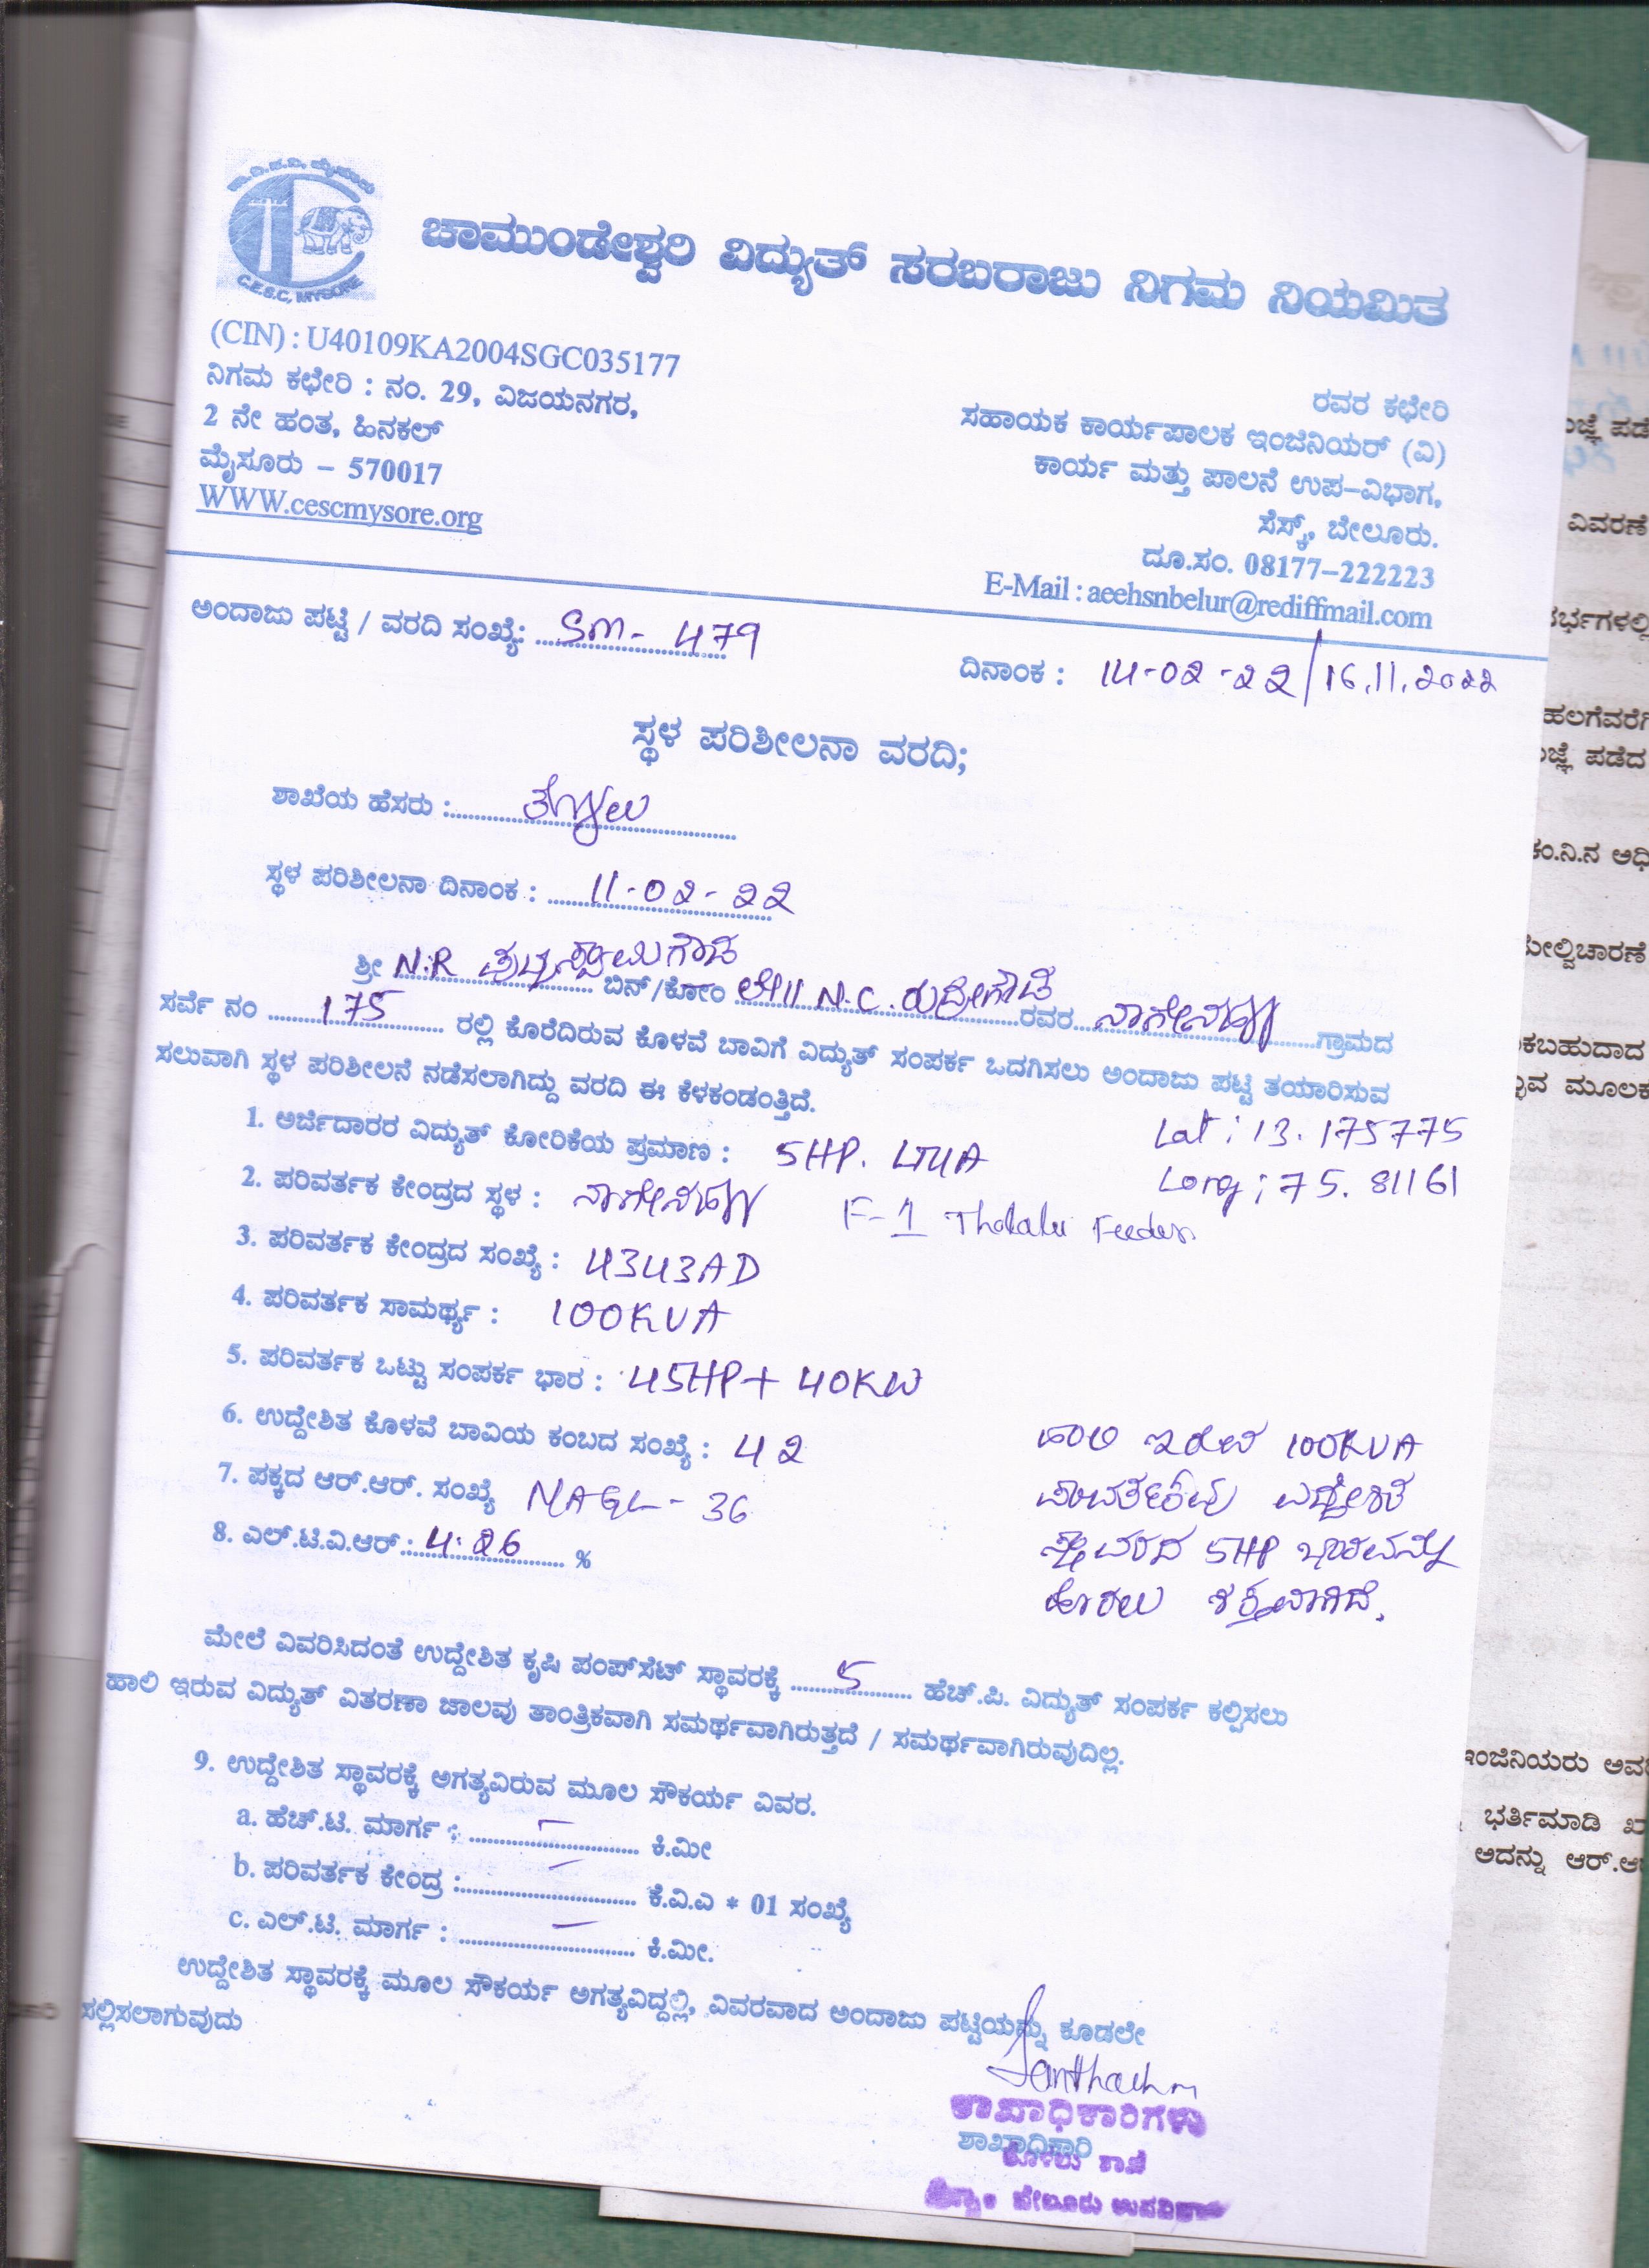 C.E.S.C, MYSORE
ಚಾಮುಂಡೇಶ್ವರಿ ವಿದ್ಯುತ್ ಸರಬರಾಜು ನಿಗಮ ನಿಯಮಿತ
(CIN) : U40109KA2004SGC035177
ನಿಗಮ ಕಛೇರಿ : ನಂ. 29, ವಿಜಯನಗರ,
2 ನೇ ಹಂತ, ಹಿನಕಲ್
ಮೈಸೂರು – 570017
WWW.cescmysore.org
ರವರ ಕಛೇರಿ
ಸಹಾಯಕ ಕಾರ್ಯಪಾಲಕ ಇಂಜಿನಿಯರ್ (ವಿ)
ಕಾರ್ಯ ಮತ್ತು ಪಾಲನೆ ಉಪ–ವಿಭಾಗ,
ಸೆಸ್ಕ್, ಬೇಲೂರು.
ದೂ.ಸಂ. 08177–222223
E-Mail : aeehsnbelur@rediffmail.com
ಅಂದಾಜು ಪಟ್ಟಿ / ವರದಿ ಸಂಖ್ಯೆ: SM - 479
ದಿನಾಂಕ : 14-02-22/16.11.2022
ಸ್ಥಳ ಪರಿಶೀಲನಾ ವರದಿ;
ಶಾಖೆಯ ಹೆಸರು :
ಸ್ಥಳ ಪರಿಶೀಲನಾ ದಿನಾಂಕ : 11-02-22
ಶ್ರೀ N.R ಬಿನ್/ಕೋಂ ಲೇ|| N.C. ರುದ್ರೇಗೌಡ ರವರ ನಾಗೇನಹಳ್ಳಿ ಗ್ರಾಮದ
ಸರ್ವೆ ನಂ 175 ರಲ್ಲಿ ಕೊರೆದಿರುವ ಕೊಳವೆ ಬಾವಿಗೆ ವಿದ್ಯುತ್ ಸಂಪರ್ಕ ಒದಗಿಸಲು ಅಂದಾಜು ಪಟ್ಟಿ ತಯಾರಿಸುವ
ಸಲುವಾಗಿ ಸ್ಥಳ ಪರಿಶೀಲನೆ ನಡೆಸಲಾಗಿದ್ದು ವರದಿ ಈ ಕೆಳಕಂಡಂತ್ತಿದೆ.
1. ಅರ್ಜಿದಾರರ ವಿದ್ಯುತ್ ಕೋರಿಕೆಯ ಪ್ರಮಾಣ : 5HP. LT4A
Lat : 13.175775
Long : 75.81161
2. ಪರಿವರ್ತಕ ಕೇಂದ್ರದ ಸ್ಥಳ : ನಾಗೇನಹಳ್ಳಿ F-1 Tholalu Feeder
3. ಪರಿವರ್ತಕ ಕೇಂದ್ರದ ಸಂಖ್ಯೆ : 4343AD
4. ಪರಿವರ್ತಕ ಸಾಮರ್ಥ್ಯ : 100KVA
5. ಪರಿವರ್ತಕ ಒಟ್ಟು ಸಂಪರ್ಕ ಭಾರ : 45HP+ 40KW
6. ಉದ್ದೇಶಿತ ಕೊಳವೆ ಬಾವಿಯ ಕಂಬದ ಸಂಖ್ಯೆ : 42
7. ಪಕ್ಕದ ಆರ್.ಆರ್. ಸಂಖ್ಯೆ NAGL - 36
8. ಎಲ್.ಟಿ.ವಿ.ಆರ್ : 4.26 %
ಹಾಲಿ ಇರುವ 100KVA
ಪರಿವರ್ತಕವು ಉದ್ದೇಶಿತ
ಸ್ಥಾವರದ 5HP ಭಾರವನ್ನು
ಹೊರಲು ಶಕ್ತವಾಗಿದೆ.
ಮೇಲೆ ವಿವರಿಸಿದಂತೆ ಉದ್ದೇಶಿತ ಕೃಷಿ ಪಂಪ್‌ಸೆಟ್ ಸ್ಥಾವರಕ್ಕೆ 5 ಹೆಚ್.ಪಿ. ವಿದ್ಯುತ್ ಸಂಪರ್ಕ ಕಲ್ಪಿಸಲು
ಹಾಲಿ ಇರುವ ವಿದ್ಯುತ್ ವಿತರಣಾ ಜಾಲವು ತಾಂತ್ರಿಕವಾಗಿ ಸಮರ್ಥವಾಗಿರುತ್ತದೆ / ಸಮರ್ಥವಾಗಿರುವುದಿಲ್ಲ.
9. ಉದ್ದೇಶಿತ ಸ್ಥಾವರಕ್ಕೆ ಅಗತ್ಯವಿರುವ ಮೂಲ ಸೌಕರ್ಯ ವಿವರ.
a. ಹೆಚ್.ಟಿ. ಮಾರ್ಗ : – ಕಿ.ಮೀ
b. ಪರಿವರ್ತಕ ಕೇಂದ್ರ : – ಕೆ.ವಿ.ಎ * 01 ಸಂಖ್ಯೆ
c. ಎಲ್.ಟಿ. ಮಾರ್ಗ : – ಕಿ.ಮೀ.
ಉದ್ದೇಶಿತ ಸ್ಥಾವರಕ್ಕೆ ಮೂಲ ಸೌಕರ್ಯ ಅಗತ್ಯವಿದ್ದಲ್ಲಿ, ವಿವರವಾದ ಅಂದಾಜು ಪಟ್ಟಿಯನ್ನು ಕೂಡಲೇ
ಸಲ್ಲಿಸಲಾಗುವುದು
ಶಾಖಾಧಿಕಾರಿಗಳು
ಶಾಖಾಧಿಕಾರಿ
ಶಾಖೆ
ಬೇಲೂರು ಉಪವಿಭಾಗ
ವಿವರಣೆ
ಪಡೆದ
ಮೂಲಕ
ಭರ್ತಿಮಾಡಿ
ಅದನ್ನು